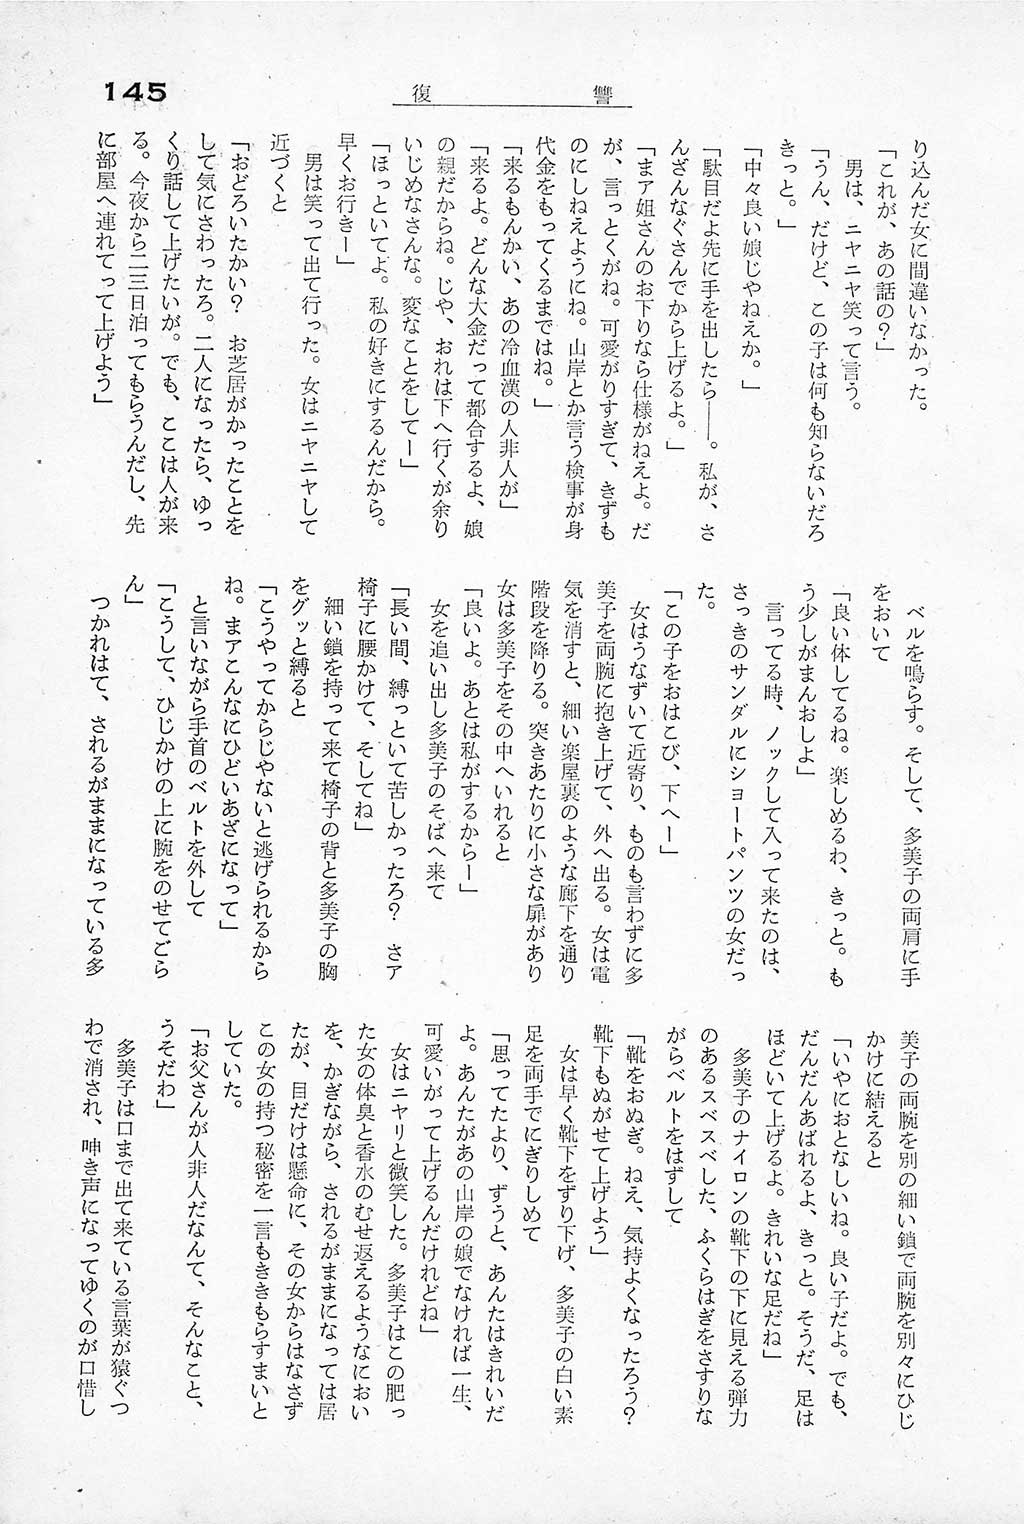 145
復讐
り込んだ女に間違いなかった。
「これが、あの話の？」
男は、ニヤニヤ笑って言う。
「うん、だけど、この子は何も知らないだろ
きっと。」
「中々良い娘じやねえか。」
「駄目だよ先に手を出したら――。私が、さ
んざんなぐさんでから上げるよ。」
「まア姐さんのお下りなら仕様がねえよ。だ
が、言っとくがね。可愛がりすぎて、きずも
のにしねえようにね。山岸とか言う検事が身
代金をもってくるまではね。」
「来るもんかい、あの冷血漢の人非人が」
「来るよ。どんな大金だって都合するよ、娘
の親だからね。じや、おれは下へ行くが余り
いじめなさんな。変なことをしてー」
「ほっといてよ。私の好きにするんだから。
早くお行きー」
男は笑って出て行った。女はニヤニヤして
近づくと
「おどろいたかい？　お芝居がかったことを
して気にさわったろ。二人になったら、ゆっ
くり話して上げたいが。でも、ここは人が来
る。今夜から二三日泊ってもらうんだし、先
に部屋へ連れてって上げよう」
ベルを鳴らす。そして、多美子の両肩に手
をおいて
「良い体してるね。楽しめるわ、きっと。も
う少しがまんおしよ」
言ってる時、ノックして入って来たのは、
さっきのサンダルにショートパンツの女だっ
た。
「この子をおはこび、下へー」
女はうなずいて近寄り、ものも言わずに多
美子を両腕に抱き上げて、外へ出る。女は電
気を消すと、細い楽屋裏のような廊下を通り
階段を降りる。突きあたりに小さな扉があり
女は多美子をその中へいれると
「良いよ。あとは私がするからー」
女を追い出し多美子のそばへ来て
「長い間、縛っといて苦しかったろ？　さア
椅子に腰かけて、そしてね」
細い鎖を持って来て椅子の背と多美子の胸
をグッと縛ると
「こうやってからじゃないと逃げられるから
ね。まアこんなにひどいあざになって」
と言いながら手首のベルトを外して
「こうして、ひじかけの上に腕をのせてごら
ん」
つかれはて、されるがままになっている多
美子の両腕を別の細い鎖で両腕を別々にひじ
かけに結えると
「いやにおとなしいね。良い子だよ。でも、
だんだんあばれるよ、きっと。そうだ、足は
ほどいて上げるよ。きれいな足だね」
多美子のナイロンの靴下の下に見える弾力
のあるスベスベした、ふくらはぎをさすりな
がらベルトをはずして
「靴をおぬぎ。ねえ、気持よくなったろう？
靴下もぬがせて上げよう」
女は早く靴下をずり下げ、多美子の白い素
足を両手でにぎりしめて
「思ってたより、ずうと、あんたはきれいだ
よ。あんたがあの山岸の娘でなければ一生、
可愛いがって上げるんだけれどね」
女はニヤリと微笑した。多美子はこの肥っ
た女の体臭と香水のむせ返えるようなにおい
を、かぎながら、されるがままになっては居
たが、目だけは懸命に、その女からはなさず
この女の持つ秘密を一言もききもらすまいと
していた。
「お父さんが人非人だなんて、そんなこと、
うそだわ」
多美子は口まで出て来ている言葉が猿ぐつ
わで消され、呻き声になってゆくのが口惜し